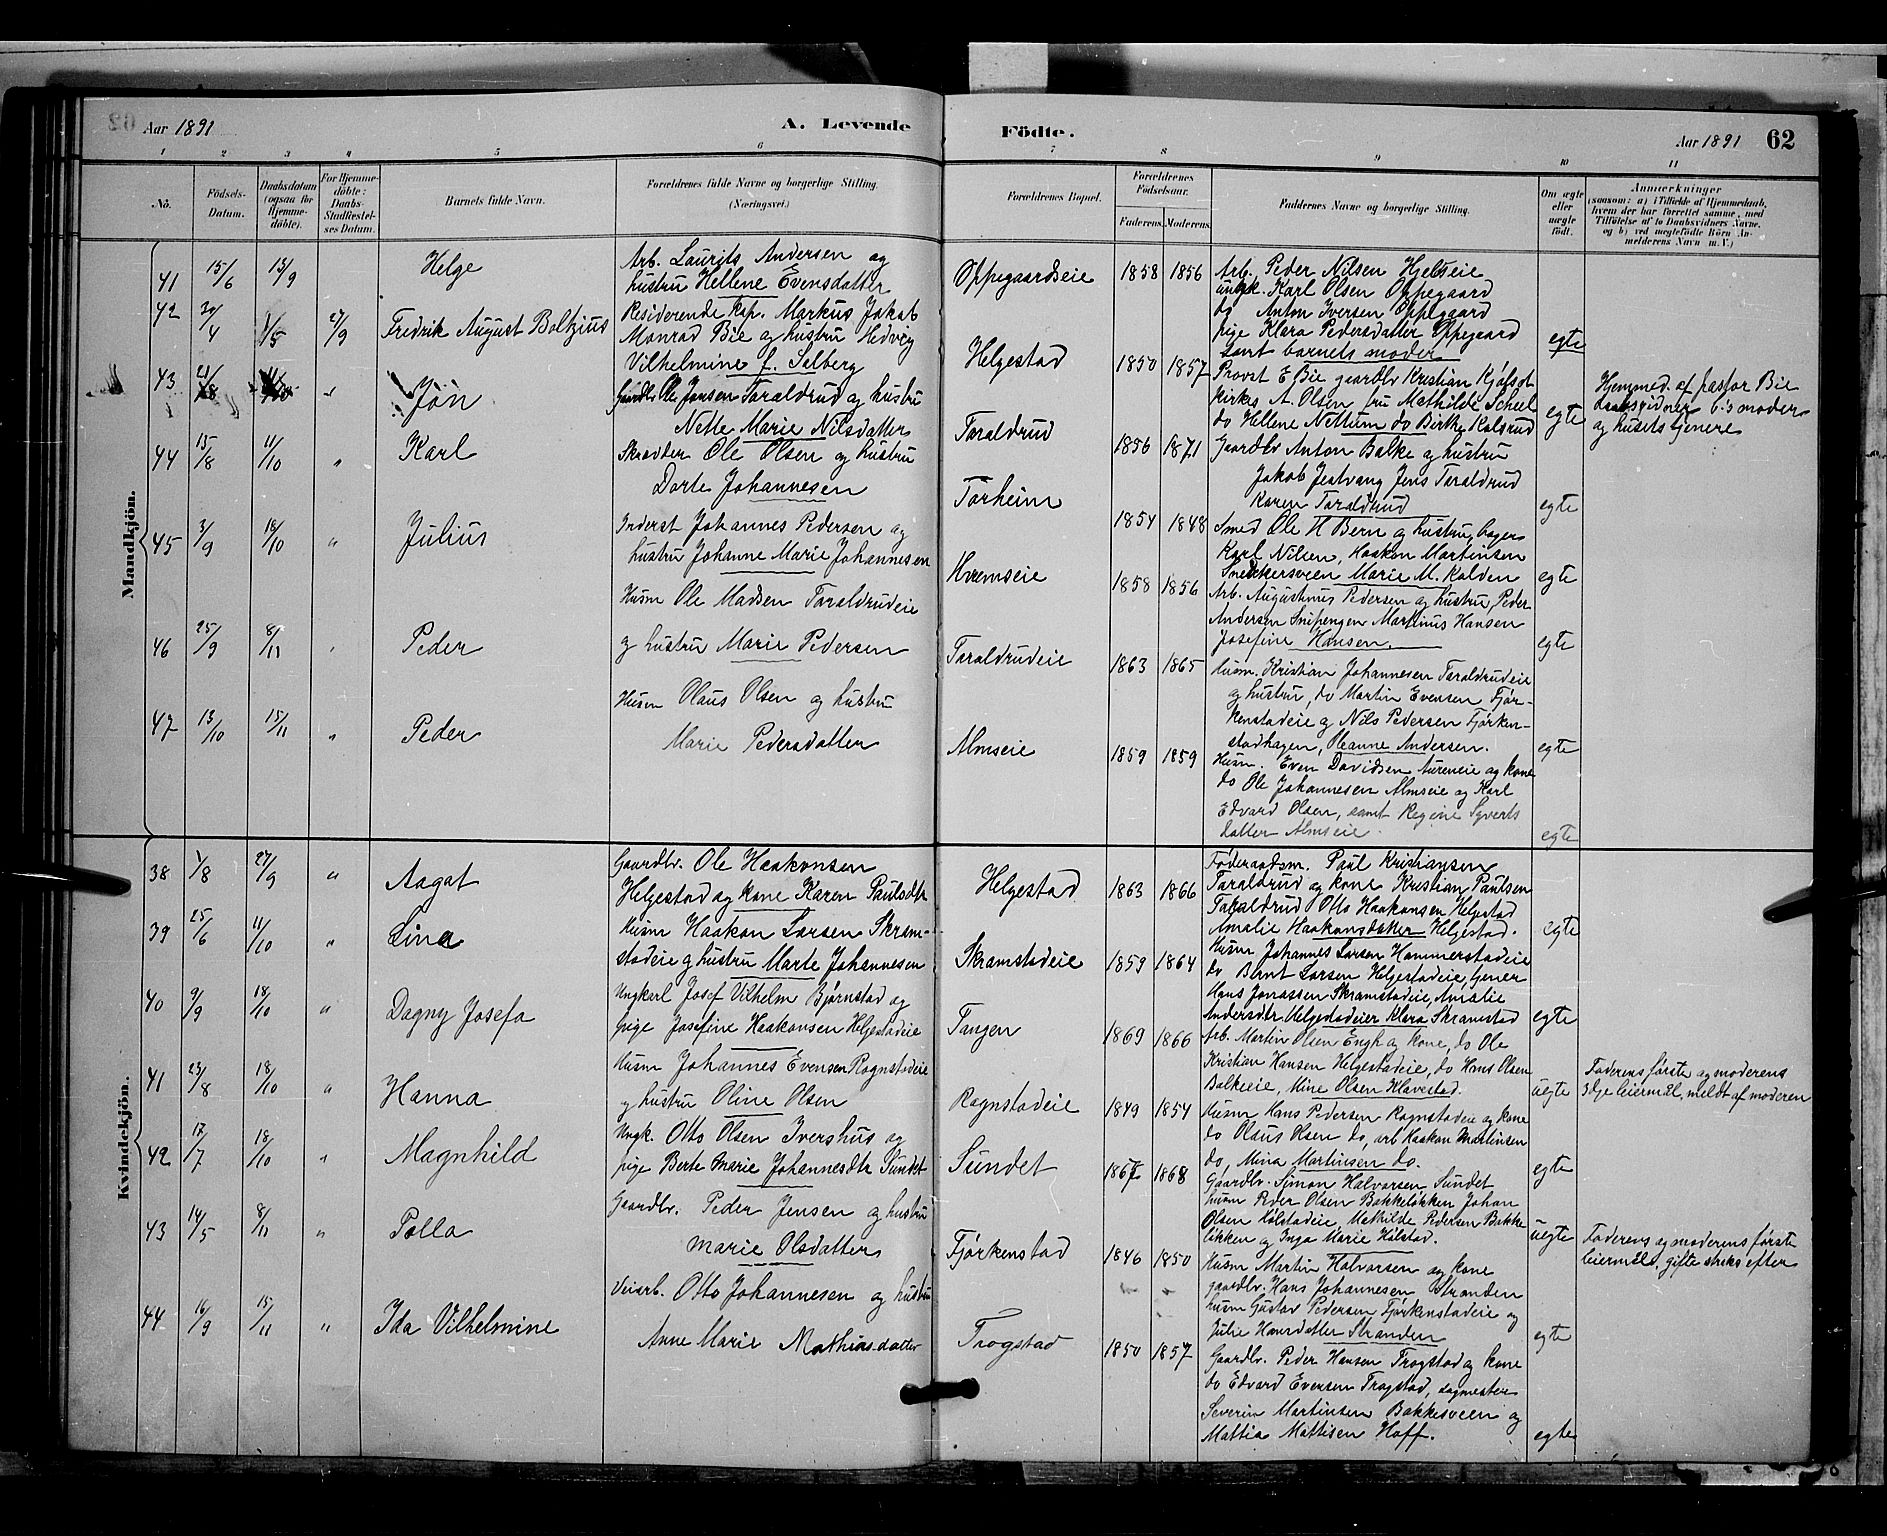 Aar 1891
A. Levende
Födte.
Aar 1891
62
1 2 3 4 5 6 7 8 9 10 11
No. Födsels-Datum. Daabsdatum (ogsaa for Hjemmedöbte). For Hjemmedöbte: Daabs-Stadfæstelses Datum. Barnets fulde Navn. Forældrenes fulde Navne og borgerlige Stilling. (Næringsvei.) Forældrenes Bopæl. Forældrenes Födselsaar. Faderens Moderens. Faddernes Navne og borgerlige Stilling. Om ægte eller uægte födt. Anmærkninger (saasom: a) i Tilfælde af Hjemmedaab, hvem der har forrettet samme, med Tilföielse af to Daabsvidners Navne, og b) ved uægtefödte Börn Anmelderens Navn m. V.)
Mandkjön.
41 15/6 13/9 Helge
Arb. Laurits Andersen og
hustru Hellene Evensdatter
Oppegaardseie 1858 1856
Arb. Peder Nilsen Hjelseie
ungk. Karl Olsen Oppegaard
do Anton Iversen Oppegaard
pige Klara Pedersdatter Oppegaard
samt barnets moder
egte
42 20/4 1/5 27/9 Fredrik August Boltzius
Residerende Kap. Markus Jakob
Monrad Bie og hustru Hedvig
Vilhelmine f. Solberg
Helgestad 1850 1857
Provst E Bie gaardbr Kristian Kjölset
kirkes. A. Olsen fru Mathilde Scheel
do Hellene Nettum do Birthe Kolsrud
egte
Hjemmed. af pastor Bie
daabsvidner b's moder
og husets tjenere
43 21/8 " Jön
Gaardbr. Ole Jonsen Taraldrud og hustru
Nette Marie Nilsdatter
Taraldrud 1856 1871
Gaardbr Anton Balke og hustru
Jakob Jestvang Jens Taraldrud
Karen Taraldrud
egte
44 15/8 11/10 " Karl
Skrædder Ole Olsen og hustru
Dorte Johannesen
Torheim 1854 1848
Smed Ole H Bern og hustru, bager
Karl Nilsen, Haakon Martinsen
Snekkersveen Marie M. Kolden
egte
45 3/9 18/10 " Julius
Inderst Johannes Pedersen og
hustru Johanne Marie Johannesen
Hvemseie 1858 1856
Arb. Augustinus Pedersen og hustru, Peder
Andersen Snipengen Martinus Hansen
Josefine Hansen.
egte
46 25/9 8/11 " Peder
Husm Ole Madsen Taraldrudeie
og hustru Marie Pedersen
Taraldrudeie 1863 1865
Husm. Kristian Johannesen Taraldrudeie
og hustru, do Martin Evensen Fjör-
kenstadeie og Nils Pedersen Fjörken-
stadhagen, Oleanne Andersen.
egte
47 13/10 15/11 " Peder
Husm Olaus Olsen og hustru
Marie Pedersdatter
Almseie 1859 1859
Husm. Even Davidsen Aureneie og kone
do Ole Johannesen Almseie og Karl
Edvard Olsen, samt Regine Syverts
datter Almseie.
egte
Kvindekjön.
38 1/8 27/9 " Aagot
Gaardbr. Ole Haakonsen
Helgestad og kone Karen Paulsdtr
Helgestad 1863 1866
Föderaadsm. Paul Kristiansen
Taraldrud og kone Kristian Paulsen
Taraldrud Otto Haakonsen Helgestad
Amalie Haakonsdatter Helgestad.
egte
39 25/6 11/10 " Lina
Husm Haakon Larsen Skram-
stadeie og hustru Marte Johannesen
Skramstadeie 1859 1864
Husm Johannes Larsen Hammerstadeie
do Bernt Larsen Helgestadeie, tjener
Hans Jonassen Skramstadeie, Amalie
Andersdtr Helgestadeier Klara Skramstad
egte
40 9/9 18/10 " Dagny Josefa
Ungkarl Josef Vilhelm Bjørnstad og
pige Josefine Haakonsen Helgestadeie
Tangen 1869 1866
Arb. Martin Olsen Engh og kone, do Ole
Kristian Hansen Helgestadeie, do Hans Olsen
Balkeeie, Mine Olsen Klavestad.
uegte
Faderens første og moderens
3dje leiermål, meldt af moderen
41 23/8 18/10 " Hanna
Husm Johannes Evensen Rognstadeie
og hustru Oline Olsen
Rognstadeie 1849 1854
Husm Hans Pedersen Rognstadeie og kone
do Olaus Olsen do, arb Haakon Martinsen
do, Mina Martinsen do.
egte
42 17/7 18/10 " Magnhild
Ungk. Otto Olsen Ivershus og
pige Berte Marie Johannesdtr Sundet
Sundet 1867 1868
Gaardbr. Simon Halvorsen Sundet
husm Peder Olsen Bakkeløkken Johan
Olsen Kolstadeie, Mathilde Pedersen Bakke
løkken og Inga Marie Kolstad.
uegte
Faderens og moderens første
leiermål, gifte straks efter
43 14/5 8/11 " Polla
Gaardbr. Peder Jensen og hustru
Marie Olsdatter
Fjörkenstad 1846 1850
Husm Martin Halvorsen og kone
gaardbr. Hans Johannesen Stranden
husm Gustav Pedersen Fjörkenstadeie og
Julie Hansdatter Stranden
egte
44 16/9 15/11 " Ida Vilhelmine
Veiarb. Otto Johannesen og hustru
Anne Marie Mathiasdatter
Trogstad 1850 1857
Gaardbr. Peder Hansen Trogstad og kone
do Edvard Evensen Trogstad, sagmester
Severin Martinsen Bakkesveen og
Mattia Mattisen Hoff.
egte